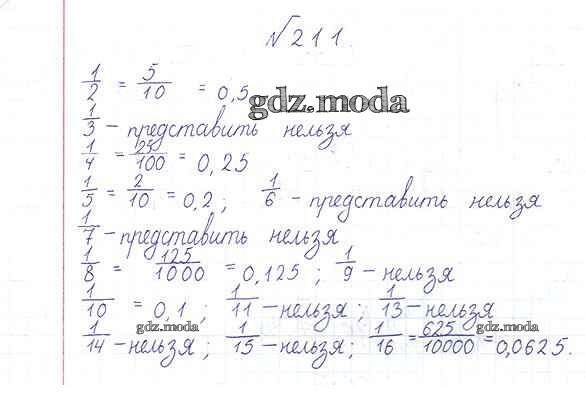 №211.
1/2 = 5/10 = 0,5
gdz.moda
1/3 – представить нельзя
1/4 = 25/100 = 0,25
1/5 = 2/10 = 0,2; 1/6 – представить нельзя
1/7 – представить нельзя
1/8 = 125/1000 = 0,125; 1/9 – нельзя
1/10 = 0,1; 1/11 – нельзя; 1/13 – нельзя
1/14 – нельзя; 1/15 – нельзя; 1/16 = 625/10000 = 0,0625.
gdz.moda gdz.moda